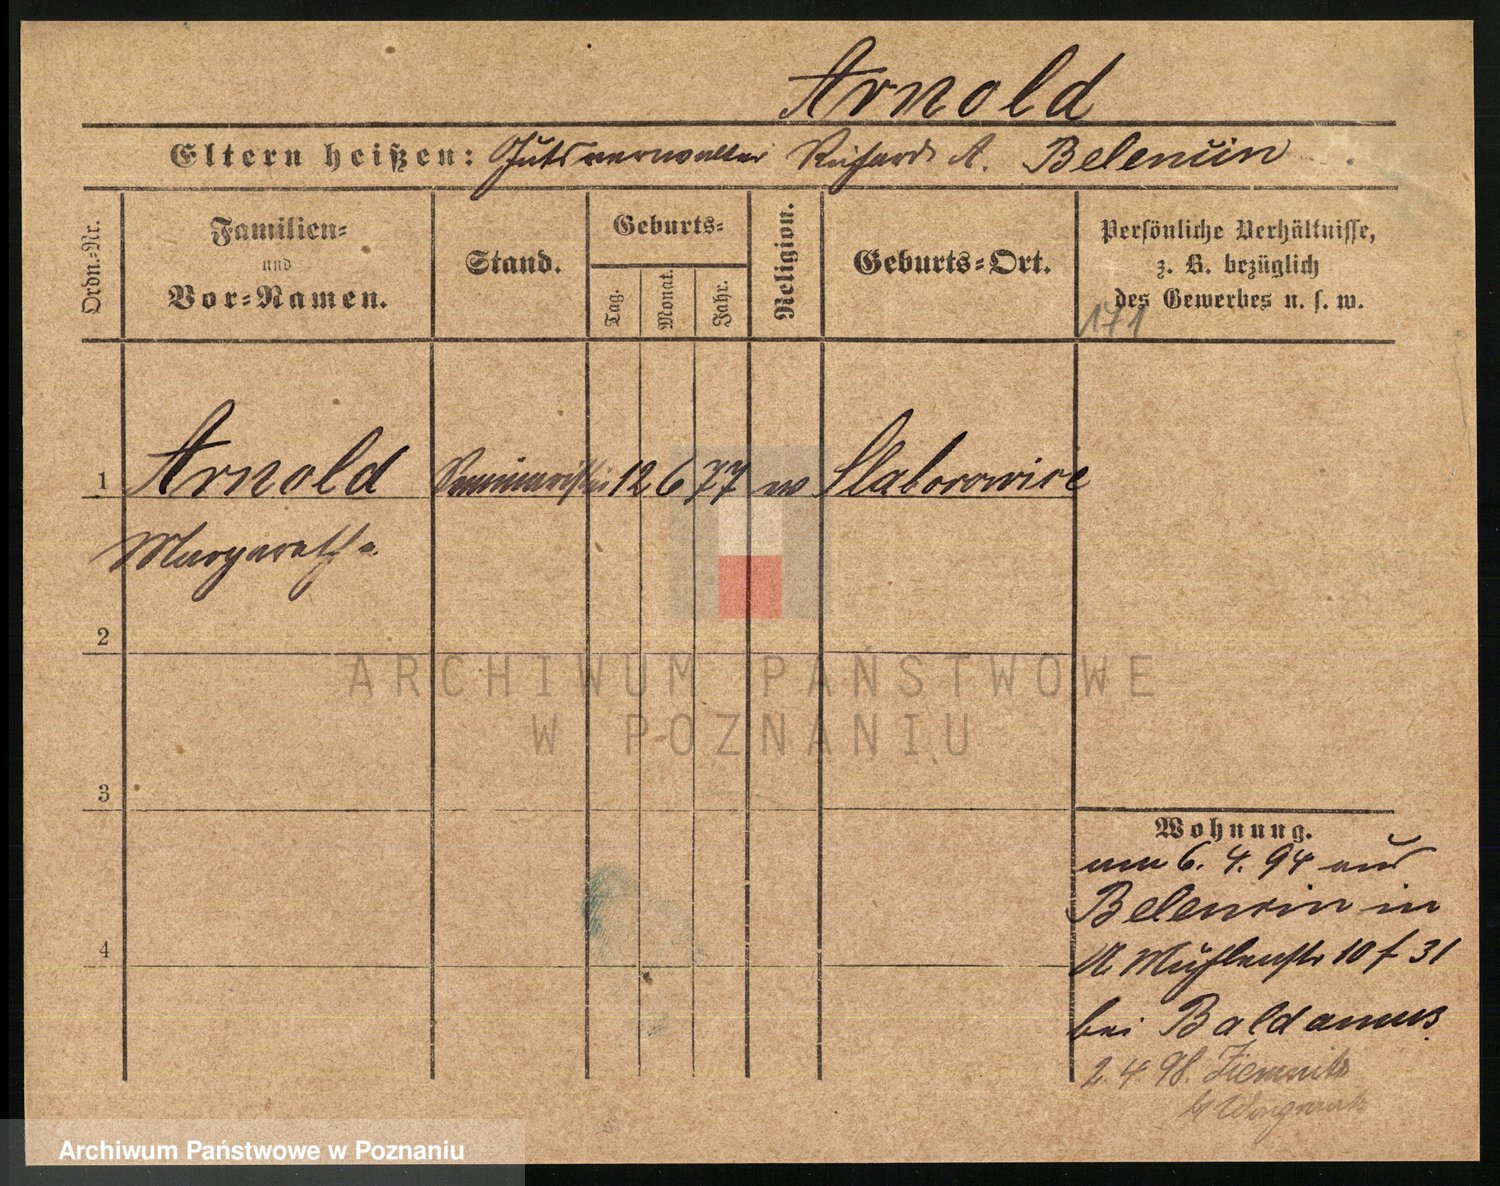 Arnold
Eltern heißen: Gutsverwalter Richard A. Belencin
Ordn.-Nr.
Familien-
und
Vor-Namen.
Stand.
Geburts-
Tag.
Monat.
Jahr.
Religion.
Geburts-Ort.
Persönliche Verhältnisse,
z. B. bezüglich
des Gewerbes u. s. w.
171
1 Arnold Seminaristin 12 6 77 Slaborowice
Margarethe
2
3
4
ARCHIWUM PAŃSTWOWE
W POZNANIU
Wohnung.
am 6. 4. 94 aus
Belencin in
Mühlenstr 10 31
bei Baldamus
2. 4. 98.
Archiwum Państwowe w Poznaniu